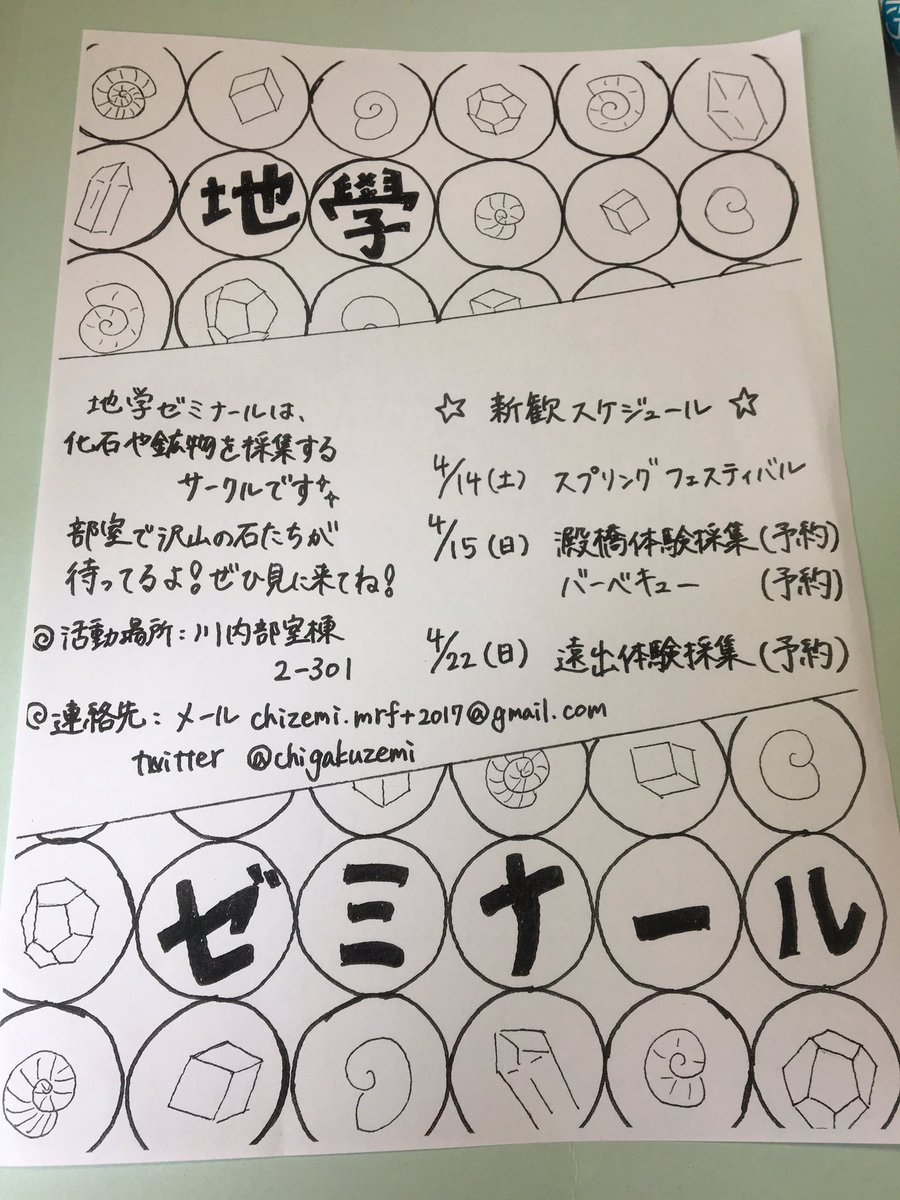 地學
地学ゼミナールは、
化石や鉱物を採集する
サークルです
部室で沢山の石たちが
待ってるよ!ぜひ見に来てね!
◎活動場所:川内部室棟
2-301
◎連絡先:メール chizemi.mrf+2017@gmail.com
twitter @chigakuzemi
☆ 新歓スケジュール ☆
4/14(土) スプリングフェスティバル
4/15(日) 澱橋体験採集(予約)
バーベキュー (予約)
4/22(日) 遠出体験採集(予約)
ゼミナール